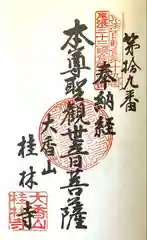 第拾九番
奉納経
本尊聖観世音菩薩
大香山
桂林寺